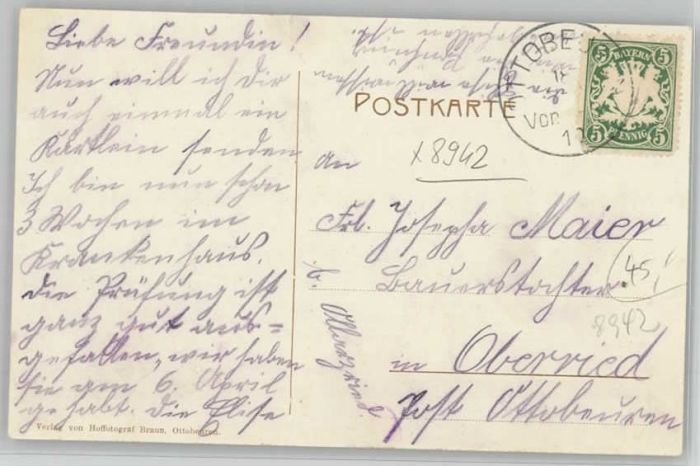 Liebe Freundin!
Nun will ich dir
auch einmal ein
Kärtlein senden
Ich bin nun schon
3 Wochen im
Krankenhaus.
die Prüfung ist
ganz gut aus-
gefallen, wir haben
sie am 6. April
gehabt. die Elise
Verlag von Hoffotograf Braun, Ottobeuren.
POSTKARTE
TOBEU
Vor
BAYERN
5 5
5 5
PFENNIG
An
x 8942
Frl. Josepha Maier
Bauerstochter
45,
8942
in Oberried
Post Ottobeuren